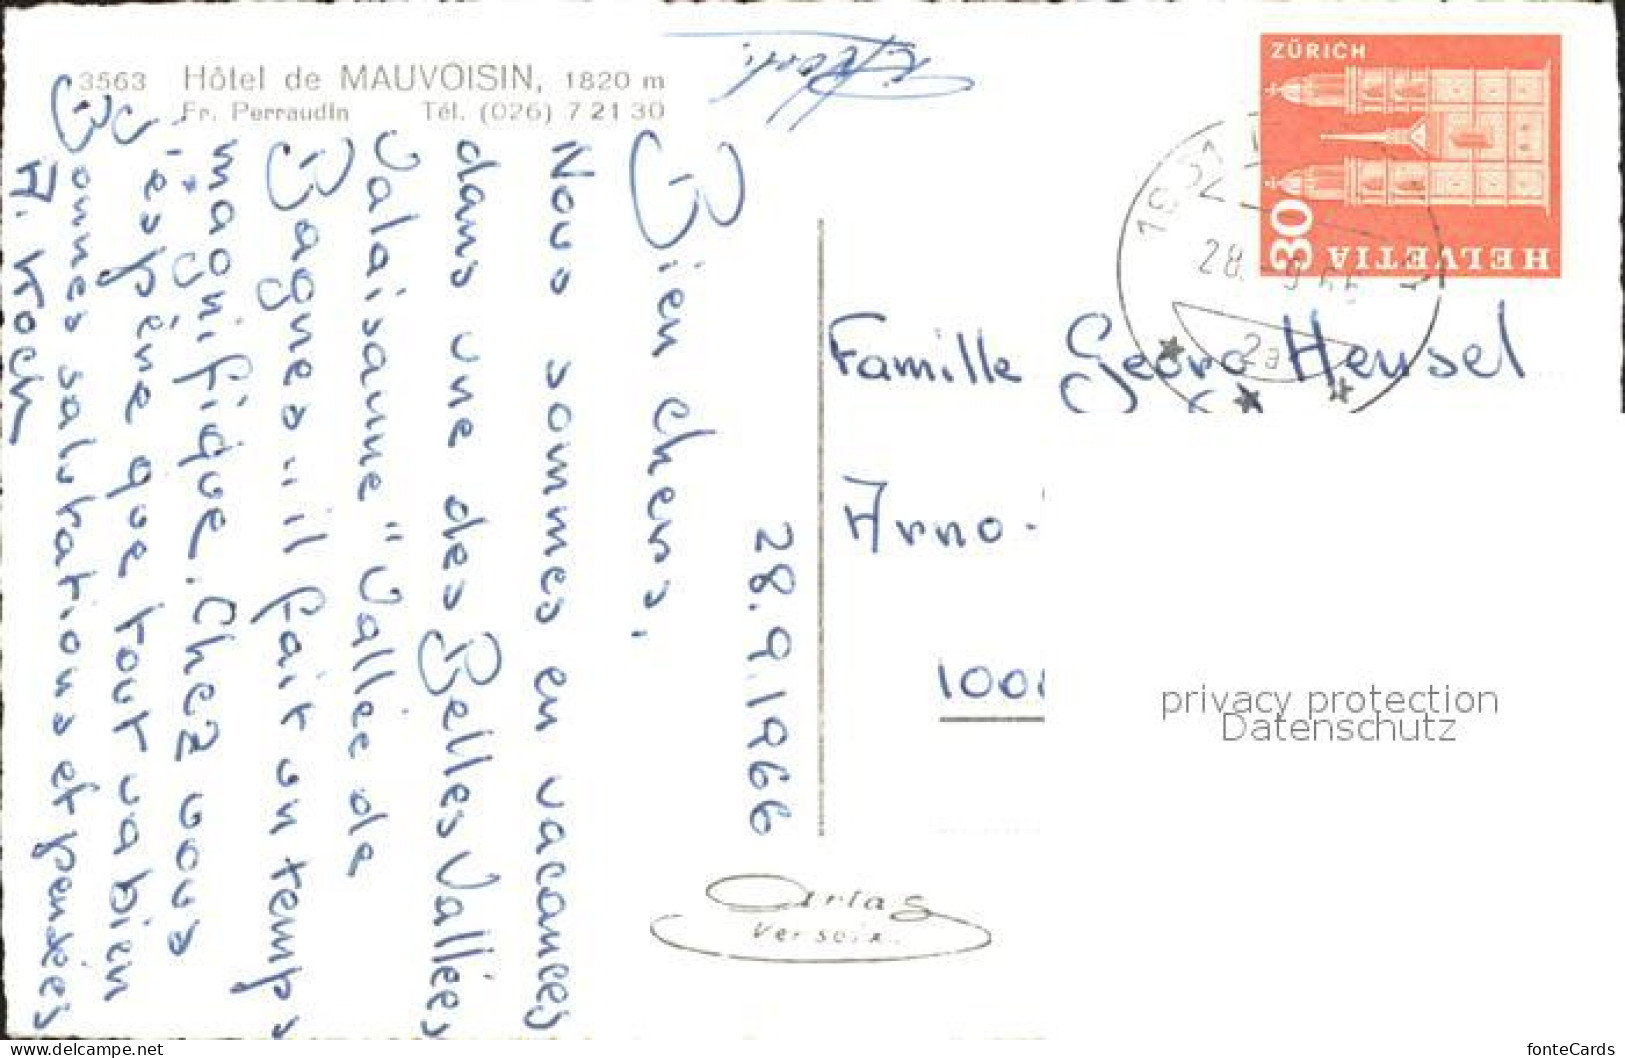 3563 Hôtel de MAUVOISIN, 1820 m
Fr. Perraudin Tél. (026) 7 21 30
28.9.1966
Bien chers,
Nous sommes en vacances
dans une des Belles Vallées
Valaisanne "Vallée de
Bagnes" il fait un temps
magnifique. Chez vous
j'espère que tout va bien
Bonnes salutations et pensées
A. Koch
ZÜRICH
30
HELVETIA
28. 9.66
2a
Famille Georg Hensel
Arno-
100
privacy protection
Datenschutz
Arlas
Versoix.
www.delcampe.net
fonteCards